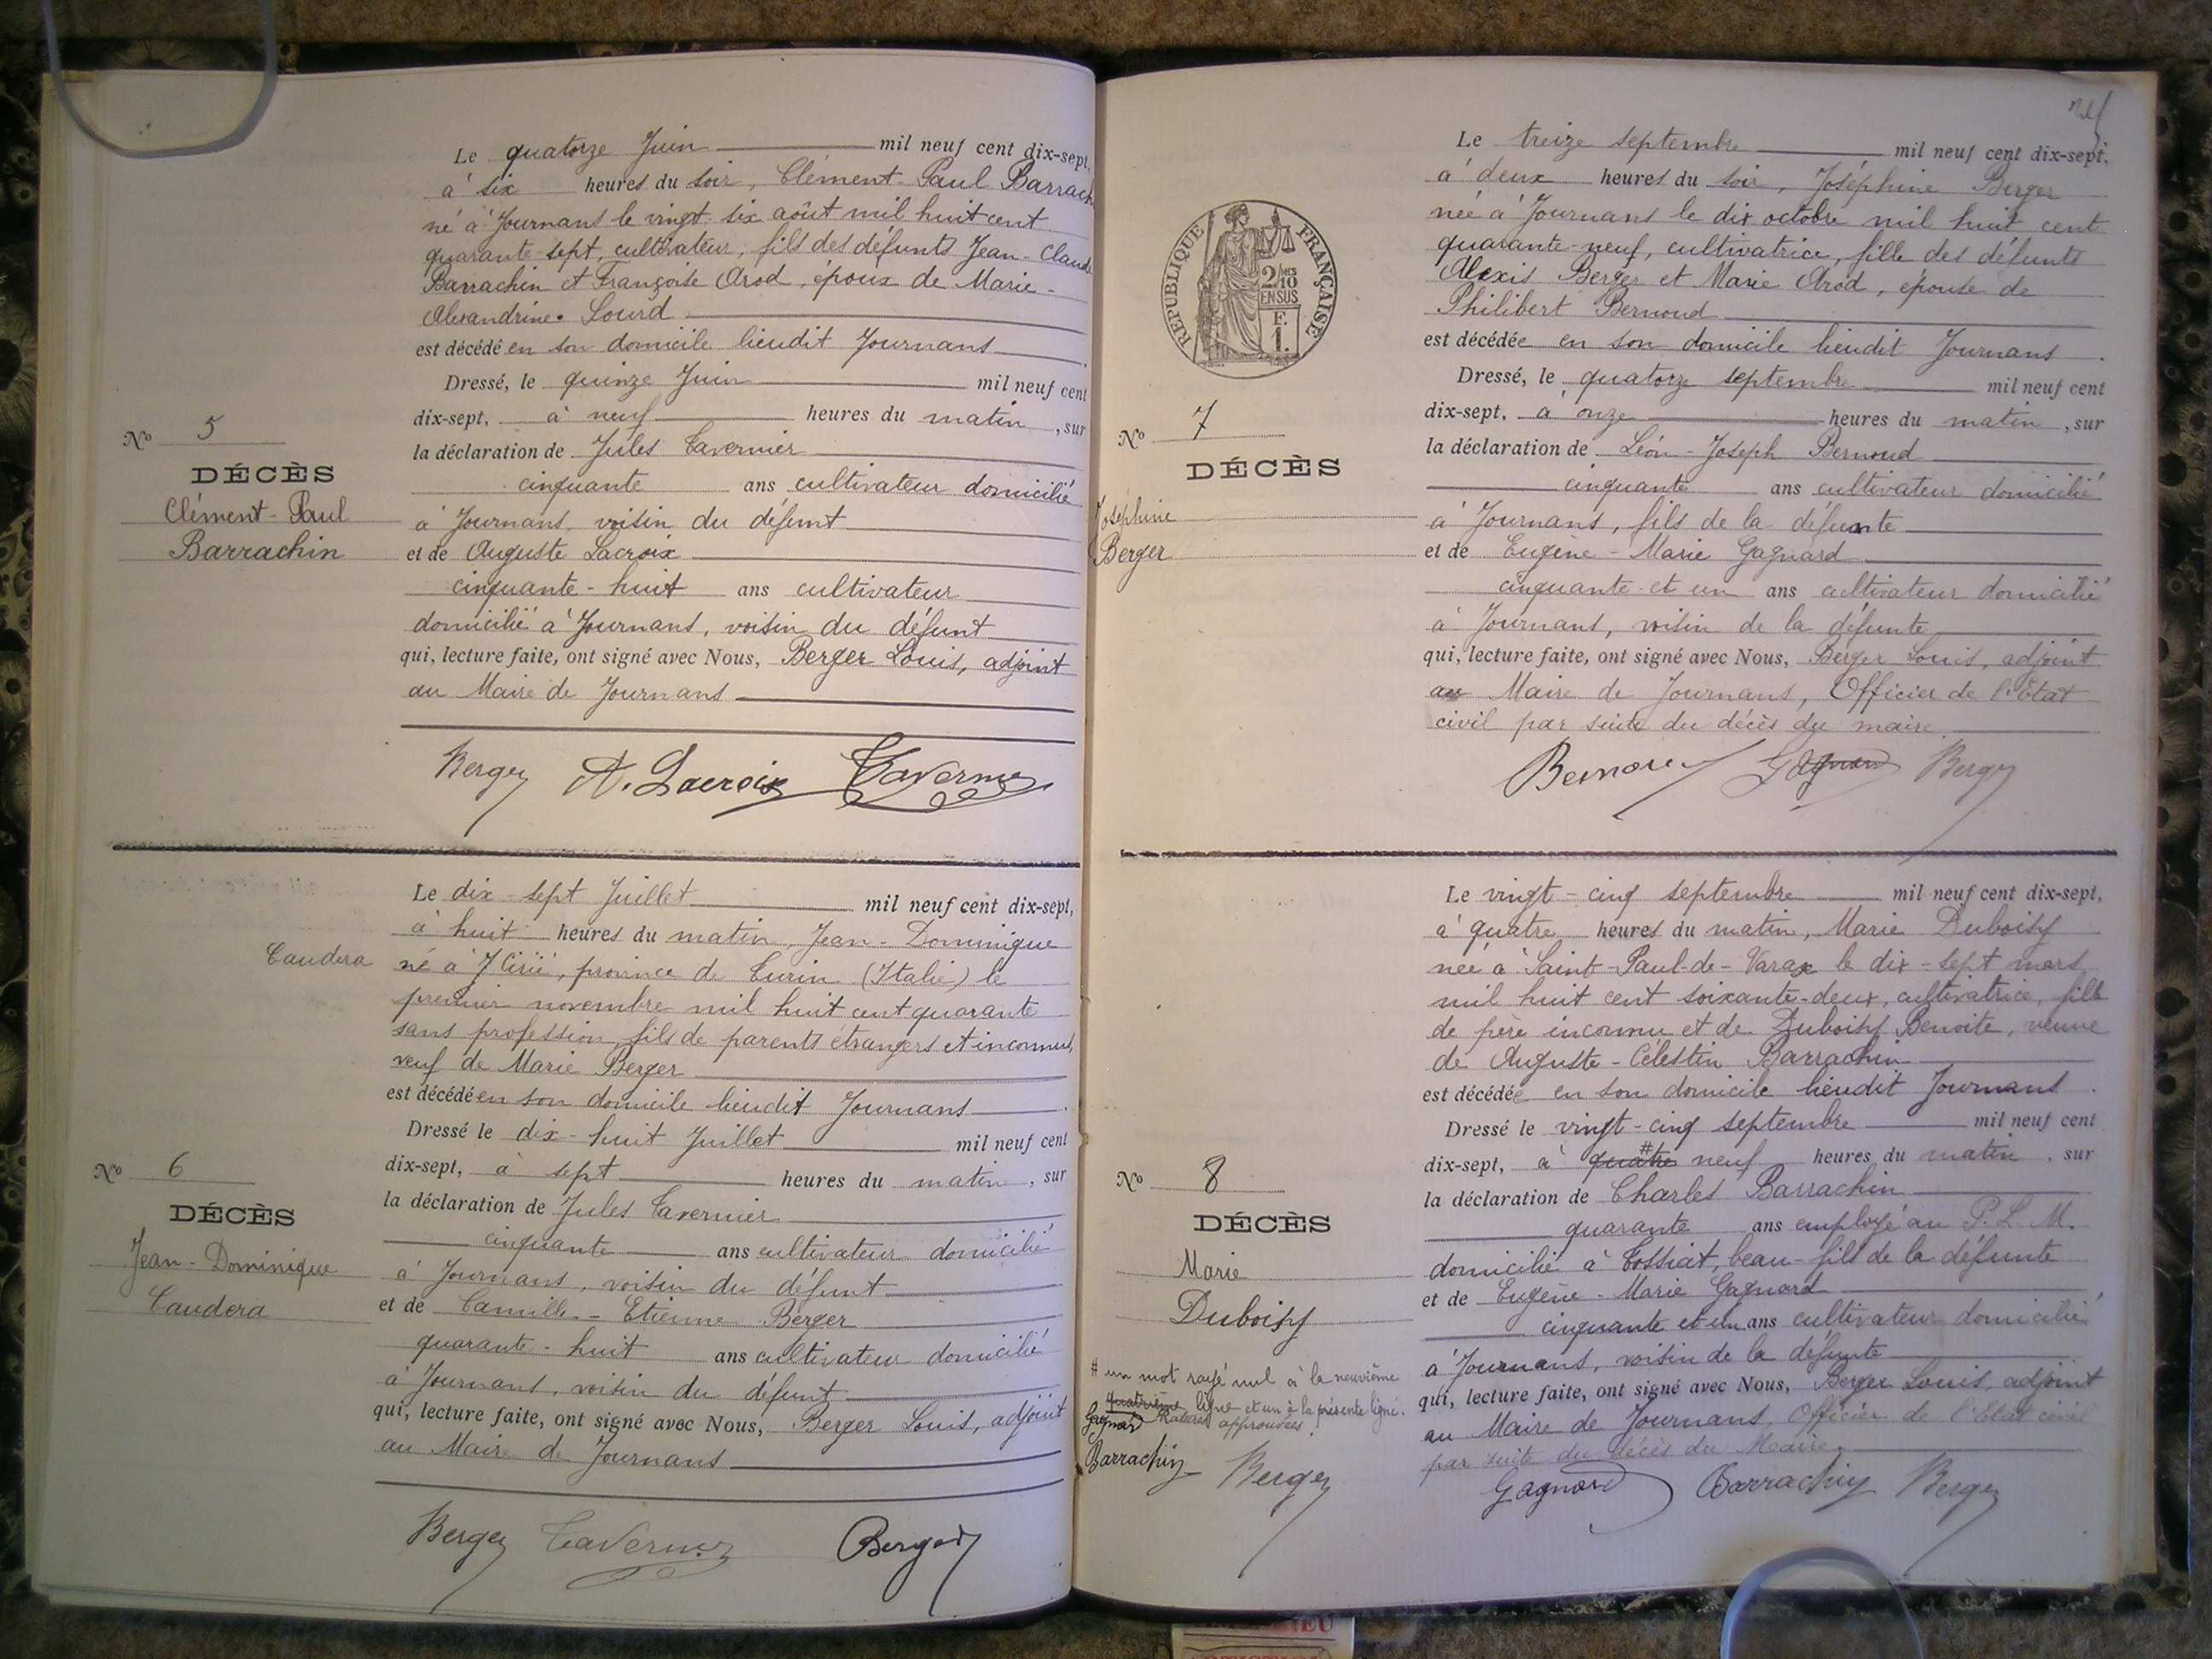 Le quatorze Juin mil neuf cent dix-sept,
à six heures du soir, Clément-Paul Barrach
né à Journans le vingt-six août mil huit cent
quarante-sept, cultivateur, fils des défunts Jean-Claude
Barrachin et Françoise Arod, époux de Marie-
Alexandrine Lourd
est décédé en son domicile lieudit Journans.
Dressé, le quinze Juin mil neuf cent
dix-sept, à neuf heures du matin, sur
la déclaration de Jules Tavernier
cinquante ans cultivateur domicilié
à Journans, voisin du défunt
et de Auguste Lacroix
cinquante-huit ans cultivateur
domicilié à Journans, voisin du défunt
qui, lecture faite, ont signé avec Nous, Berger Louis, adjoint
au Maire de Journans
Berger A. Lacroix Tavernier
No 5
DÉCÈS
Clément-Paul
Barrachin
Le dix-sept Juillet mil neuf cent dix-sept,
à huit heures du matin, Jean-Dominique
Caudera
né à Cirié, province de Turin (Italie) le
premier novembre mil huit cent quarante
sans profession, fils de parents étrangers et inconnus,
veuf de Marie Berger
est décédé en son domicile lieudit Journans.
Dressé le dix-huit Juillet mil neuf cent
dix-sept, à sept heures du matin, sur
la déclaration de Jules Tavernier
cinquante ans cultivateur domicilié
à Journans, voisin du défunt
et de Camille-Etienne Berger
quarante-huit ans cultivateur domicilié
à Journans, voisin du défunt
qui, lecture faite, ont signé avec Nous, Berger Louis, adjoint
au Maire de Journans
Berger Tavernier Berger
No 6
DÉCÈS
Jean-Dominique
Caudera
RÉPUBLIQUE FRANÇAISE
2/10
EN SUS
F.
1.
Le treize septembre mil neuf cent dix-sept,
à deux heures du soir, Joséphine Berger
née à Journans le dix octobre mil huit cent
quarante-neuf, cultivatrice, fille des défunts
Alexis Berger et Marie Arod, épouse de
Philibert Bernoud
est décédée en son domicile lieudit Journans.
Dressé, le quatorze septembre mil neuf cent
dix-sept, à onze heures du matin, sur
la déclaration de Léon-Joseph Bernoud
cinquante ans cultivateur domicilié
à Journans, fils de la défunte
et de Eugène-Marie Gagnard
cinquante-et-un ans cultivateur domicilié
à Journans, voisin de la défunte
qui, lecture faite, ont signé avec Nous, Berger Louis, adjoint
au Maire de Journans, Officier de l'Etat
civil par suite du décès du maire
Bernoud Gagnard Berger
No 7
DÉCÈS
Joséphine
Berger
Le vingt-cinq septembre mil neuf cent dix-sept,
à quatre heures du matin, Marie Duboisy
née à Saint-Paul-de-Varax le dix-sept mars
mil huit cent soixante-deux, cultivatrice, fille
de père inconnu et de Duboisy Benoite, veuve
de Auguste-Célestin Barrachin
est décédée en son domicile lieudit Journans.
Dressé le vingt-cinq septembre mil neuf cent
dix-sept, à quatre # neuf heures du matin, sur
la déclaration de Charles Barrachin
quarante ans employé au P.L.M.
domicilié à Tossiat, beau-fils de la défunte
et de Eugène-Marie Gagnard
cinquante et un ans cultivateur domicilié
à Journans, voisin de la défunte
qui, lecture faite, ont signé avec Nous, Berger Louis, adjoint
au Maire de Journans, Officier de l'Etat civil
par suite du décès du Maire.
Gagnard Barrachin Berger
No 8
DÉCÈS
Marie
Duboisy
# un mot rayé nul à la neuvième
quatrième ligne et un à la présente ligne.
Ratures approuvées.
Gagnard
Barrachin Berger